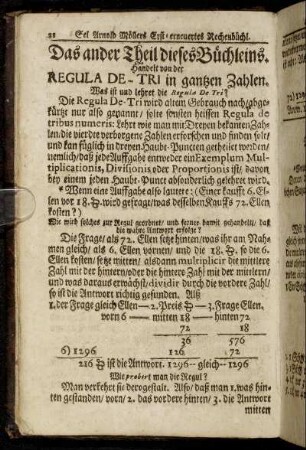 22 Sel. Arnold Möllers Erst-erneuertes Rechenbüchl.
Das ander Theil dieses Büchleins.
Handelt von der
REGULA DE-TRI in gantzen Zahlen.
Was ist und lehret die Regula De Tri?
Die Regula De-Tri wird altem Gebrauch nach (abge-
kürtzt nur also genannt / solte sonsten heissen Regula de
tribus numeris: Lehrt wie man mit Dreyen bekanten Zah-
len / die vierdte verborgene Zahlen erforschen und finden solle/
und kan füglich in dreyen Haubt-Puncten getheilet werden/
nemlich / daß jede Auffgabe entweder ein Exemplum Mul-
tiplicationis, Divisionis oder Proportionis ist / davon
bey einem jeden Haubt-Punct absonderlich gelehret wird.
* Wenn eine Auffgabe also lautete: (Einer kaufft 6. El-
len vor 18. ß wird gefragt / was desselben Kauffs 72. Ellen
kosten?)
Wie wird solches zur Regul geordnet / und ferner damit gehandelt / daß
die wahre Antwort erfolge?
Die Frage / als 72. Ellen setze hinten / was ihr am Nah-
men gleich / als 6. Ellen vornen / und die 18. ß. so die 6.
Ellen kosten / setze mitten / alsdann multiplicir die mittlere
Zahl mit der hintern / oder die hintere Zahl mit der mittlern/
und was daraus erwächst / dividir durch die vordere Zahl/
so ist die Antwort richtig gefunden. Alß
1. der Frage gleich Ellen — 2. Preis ß — 3. Frage Ellen.
vorn 6 — mitten 18 — hinten 72
72 18
36 576
6) 1296 126 72
216 ß ist die Antwort. 1296 -- gleich -- 1296
Wie probert man die Regul?
Man verkehrt sie derogestalt. Also / daß man 1. was hin-
ten gestanden / vorn / 2. das vordere hinten / 3. die Antwort
mitten